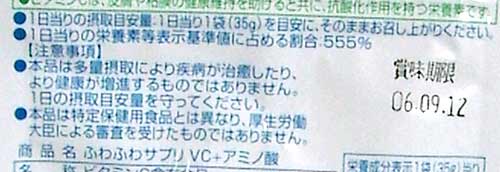 ビタミンCは、皮膚や粘膜の健康維持を助けると共に、抗酸化作用を持つ栄養素です。
●1日当りの摂取目安量:1日当り1袋(35g)を目安に、そのままお召し上がりください。
●1日当りの栄養素等表示基準値に占める割合:555%
【注意事項】
●本品は多量摂取により疾病が治癒したり、
より健康が増進するものではありません。
1日の摂取目安量を守ってください。
●本品は特定保健用食品とは異なり、厚生労働
大臣による審査を受けたものではありません。
賞味期限
06.09.12
商品名 ふわふわサプリ VC+アミノ酸
栄養成分表示1袋(35g)当り
名 称 ビタミンC含有